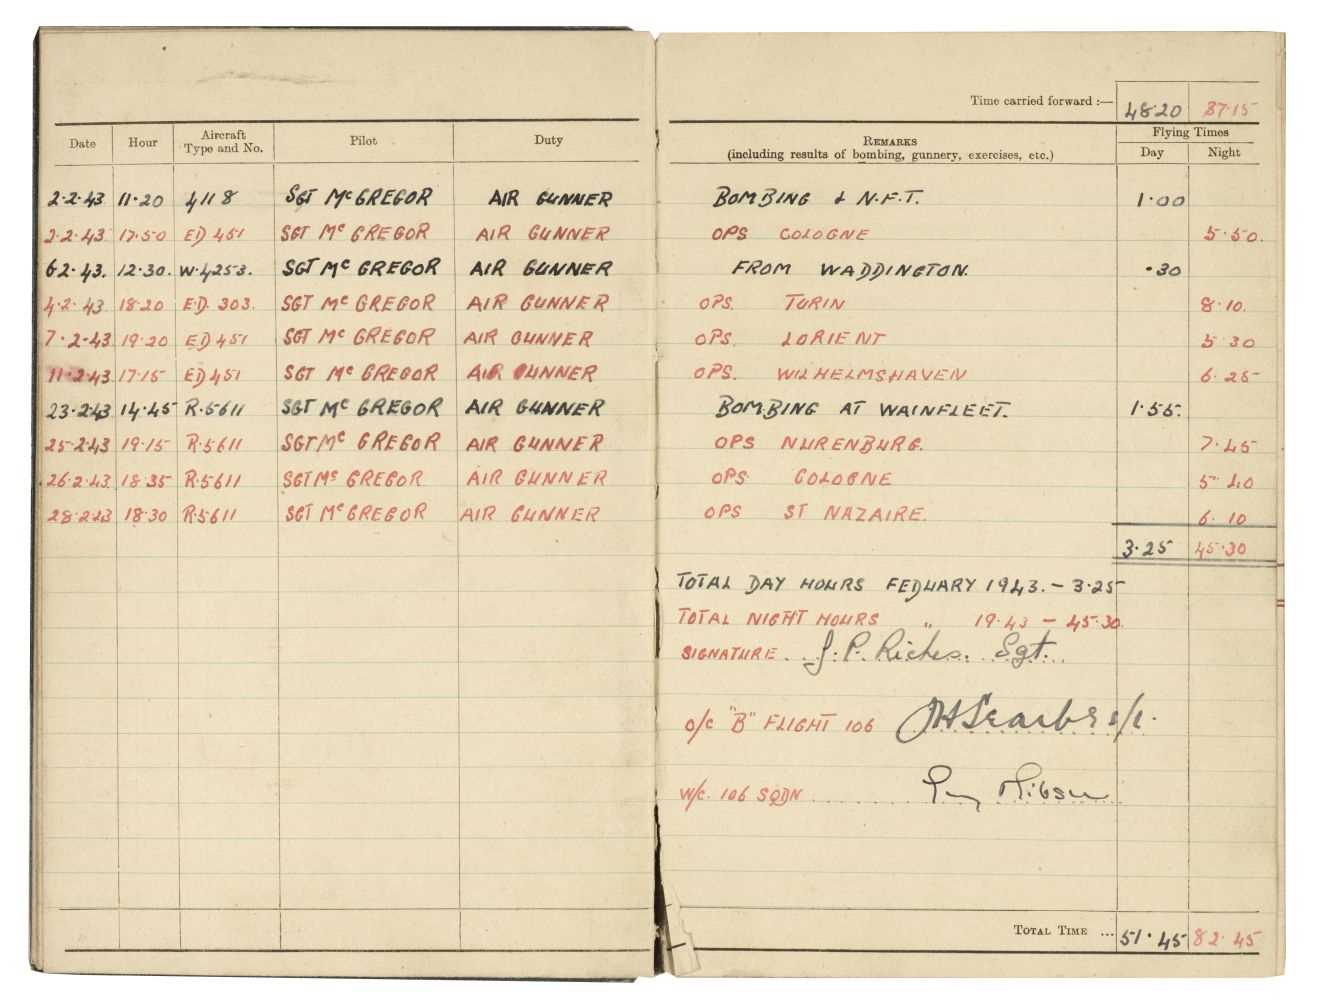 Time carried forward :— 48·20 37·15
Date Hour Aircraft Type and No. Pilot Duty REMARKS (including results of bombing, gunnery, exercises, etc.) Flying Times Day Night
2·2·43 11·20 4118 SGT McGREGOR AIR GUNNER BOMBING & N.F.T. 1·00
2·2·43 17·50 ED 451 SGT McGREGOR AIR GUNNER OPS COLOGNE 5·50.
6·2·43. 12·30. W·4253. SGT McGREGOR AIR GUNNER FROM WADDINGTON. ·30
4·2·43 18·20 E.D. 303. SGT McGREGOR AIR GUNNER OPS. TURIN 8·10.
7·2·43 19·20 ED 451 SGT McGREGOR AIR GUNNER OPS. LORIENT 5 30
11·2·43 17·15 ED 451 SGT McGREGOR AIR GUNNER OPS. WILHELMSHAVEN 6·25
23·2·43 14·45 R·5611 SGT McGREGOR AIR GUNNER BOMBING AT WAINFLEET. 1·55.
25·2·43 19·15 R·5611 SGT McGREGOR AIR GUNNER OPS NURENBURG. 7·45
26·2·43. 18·35 R·5611 SGT McGREGOR AIR GUNNER OPS COLOGNE 5·40
28·2·43 18·30 R·5611 SGT McGREGOR AIR GUNNER OPS ST NAZAIRE. 6·10
3·25 45·30
TOTAL DAY HOURS FEDUARY 1943. — 3·25
TOTAL NIGHT HOURS " 19·43 — 45·30.
SIGNATURE. J. P. Riches. Sgt.
O/C "B" FLIGHT 106 S/L.
W/C. 106 SQDN Guy Gibson
TOTAL TIME ... 51·45 82·45